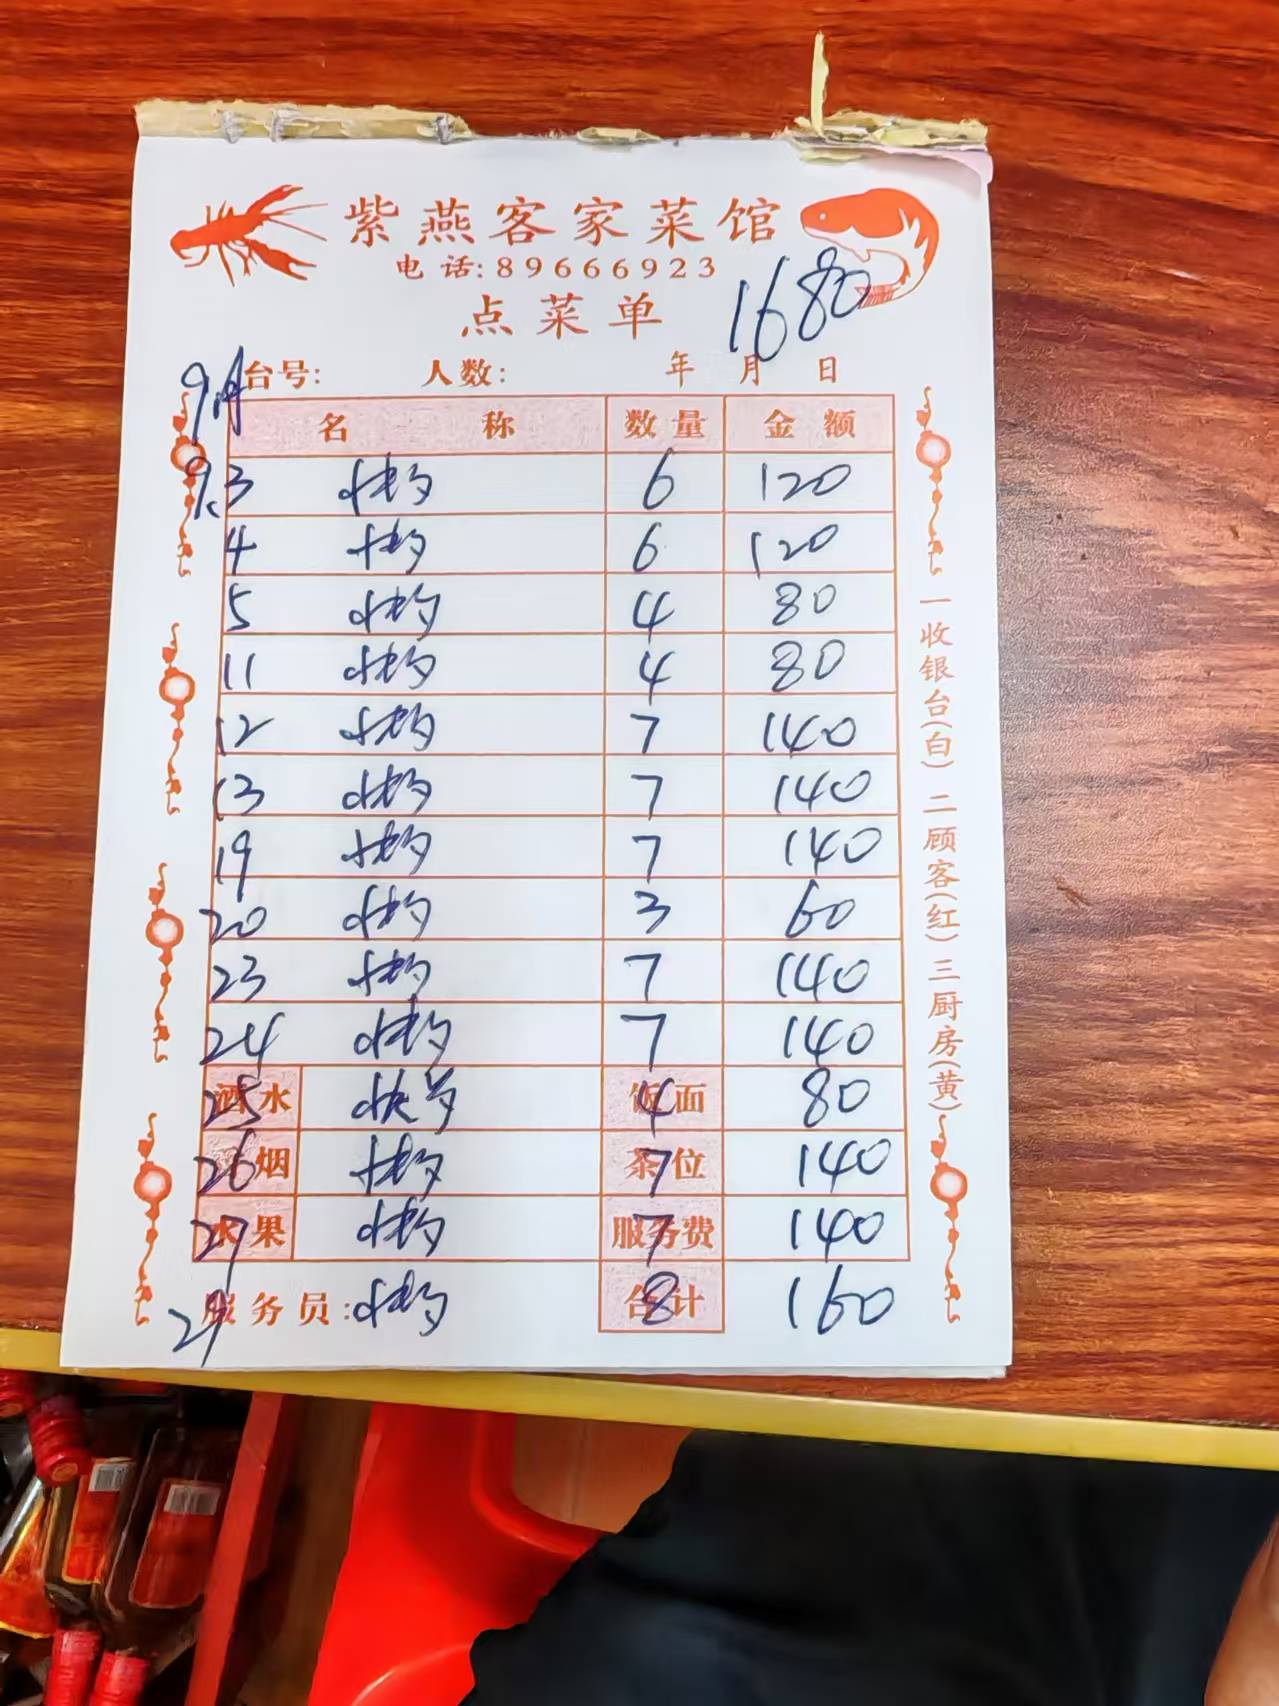 紫燕客家菜馆
电话:89666923
点菜单
1680
台号: 人数: 年 月 日
9月
名称 数量 金额
9.3 快歺 6 120
4 快歺 6 120
5 快歺 4 80
11 快歺 4 80
12 快歺 7 140
13 快歺 7 140
19 快歺 7 140
20 快歺 3 60
23 快歺 7 140
24 快歺 7 140
酒水 25 快歺 饭面 4 80
烟 26 快歺 茶位 7 140
水果 27 快歺 服务费 7 140
服务员: 29 快歺 合计 8 160
一收银台(白) 二顾客(红) 三厨房(黄)